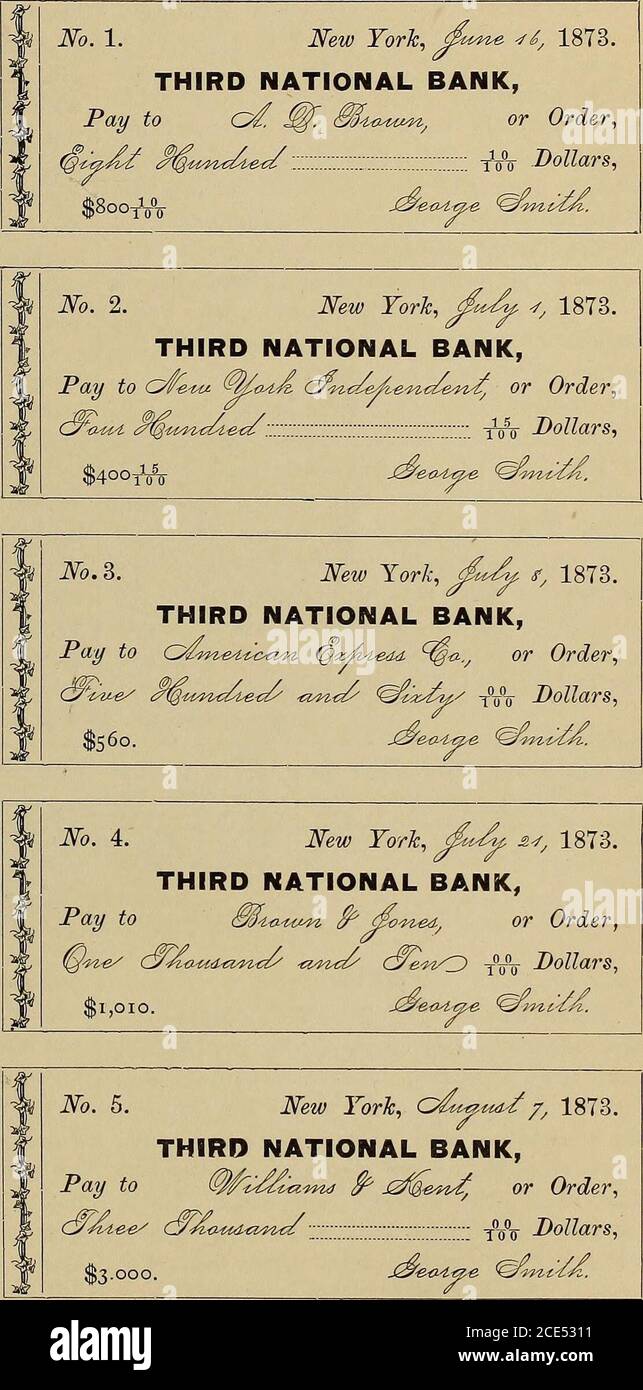 No. 1. New York, June 16, 1873.
THIRD NATIONAL BANK,
Pay to A. D. Brown, or Order,
Eight Hundred 10/100 Dollars,
$800 10/100 George Smith.
No. 2. New York, July 1, 1873.
THIRD NATIONAL BANK,
Pay to New York Independent, or Order,
Four Hundred 15/100 Dollars,
$400 15/100 George Smith.
No. 3. New York, July 8, 1873.
THIRD NATIONAL BANK,
Pay to American Express Co., or Order,
Five Hundred and Sixty 00/100 Dollars,
$560. George Smith.
No. 4. New York, July 21, 1873.
THIRD NATIONAL BANK,
Pay to Brown & Jones, or Order,
One Thousand and Ten 00/100 Dollars,
$1,010. George Smith.
No. 5. New York, August 7, 1873.
THIRD NATIONAL BANK,
Pay to Williams & Kent, or Order,
Three Thousand 00/100 Dollars,
$3.000. George Smith.
alamy
Image ID: 2CE5311
www.alamy.com